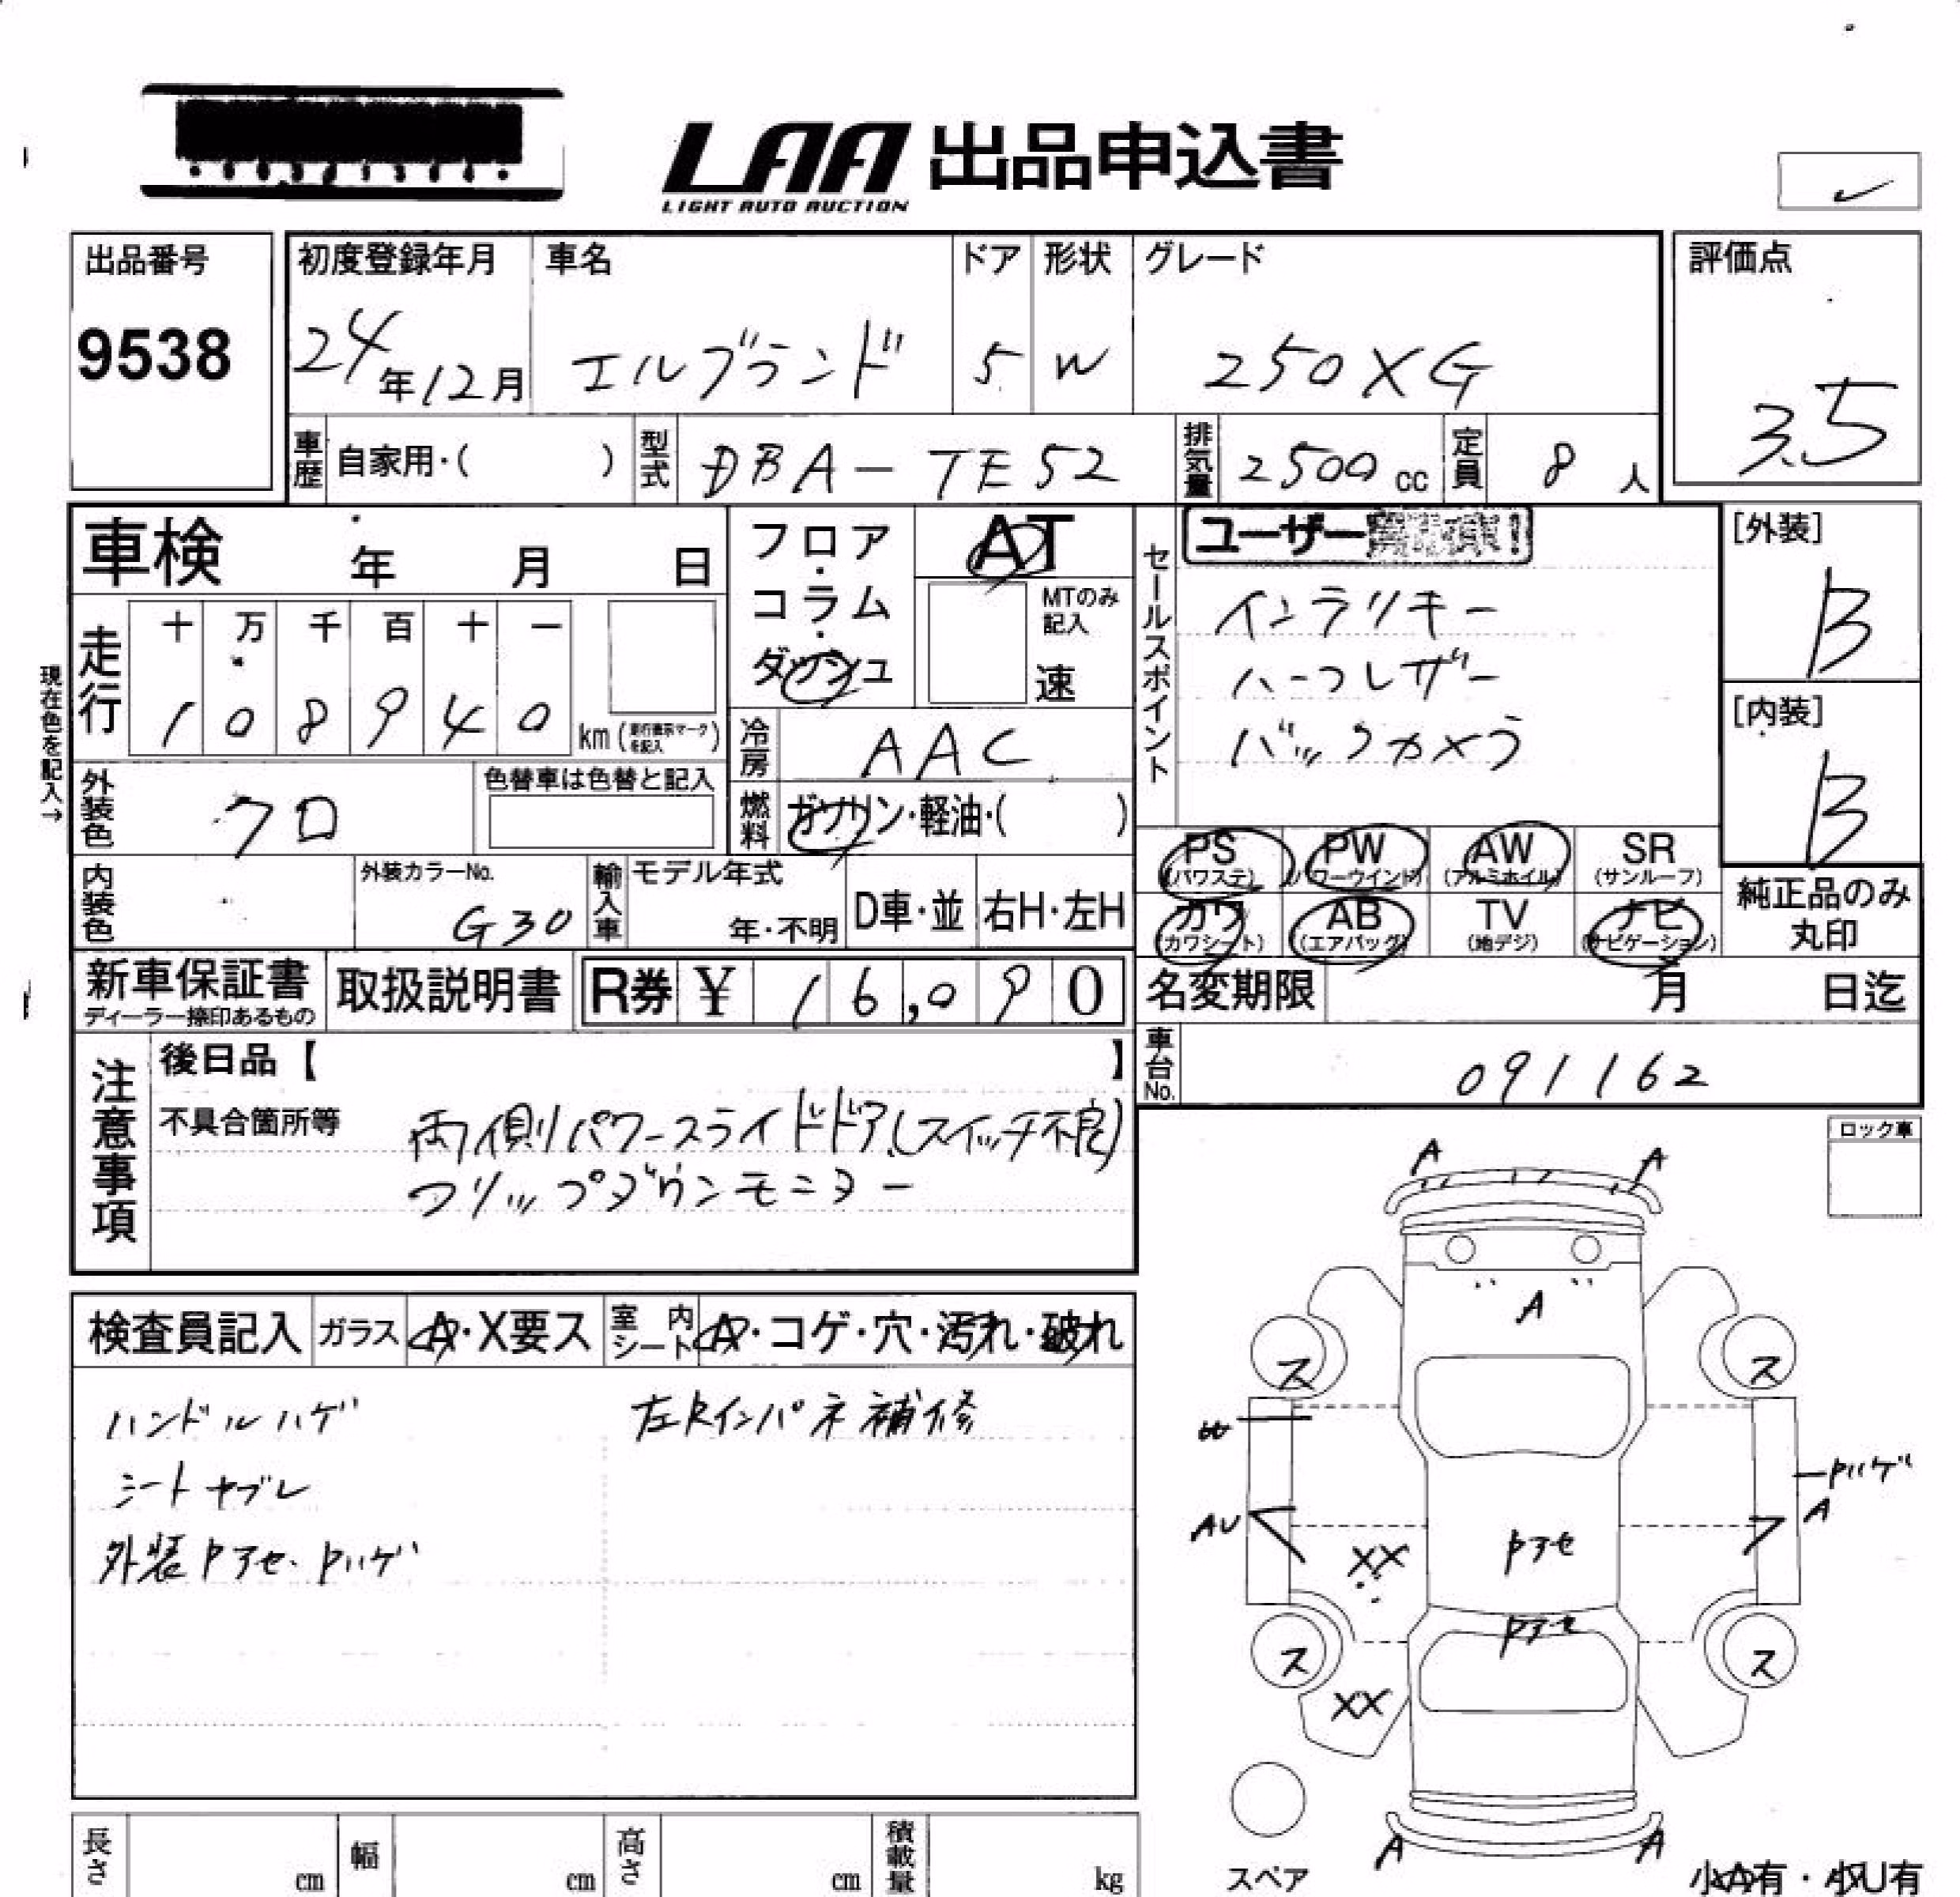 LAA 出品申込書
LIGHT AUTO AUCTION
出品番号
9538
初度登録年月
24年12月
車名
エルグランド
ドア
5
形状
W
グレード
250XG
評価点
3.5
車歴 自家用・( )
型式 DBA-TE52
排気量 2500 cc
定員 8 人
車検 年 月 日
フロア・コラム・ダッシュ
AT
MTのみ記入
速
セールスポイント
ユーザー
インテリキー
ハーフレザー
バックカメラ
[外装]
B
[内装]
B
現在色を記入→
走行
十 万 千 百 十 一
1 0 8 9 4 0 km
冷房 AAC
外装色 クロ
色替車は色替と記入
燃料 ガソリン・軽油・( )
PS (パワステ)
PW (パワーウインド)
AW (アルミホイル)
SR (サンルーフ)
カワ (カワシート)
AB (エアバッグ)
TV (地デジ)
ナビ (ナビゲーション)
純正品のみ
丸印
内装色
外装カラーNo.
G30
輸入車
モデル年式
年・不明
D車・並
右H・左H
新車保証書
ディーラー捺印あるもの
取扱説明書
R券 ¥ 16,090
名変期限 月 日迄
車台No. 091162
注意事項
後日品【 】
不具合箇所等
両側パワースライドドア(スイッチ不良)
フリップダウンモニター
ロック車
検査員記入
ガラス A・X要ス
室内シート A・コゲ・穴・汚れ・破れ
ハンドルハゲ
左Rインパネ補修
シートヤブレ
外装Pアセ・Pハゲ
A A
A
ス ス
Pハゲ
AU
A
XX
Pアセ
Pアセ
ス ス
XX
A A
スペア
小A有・小U有
長さ cm
幅 cm
高さ cm
積載量 kg